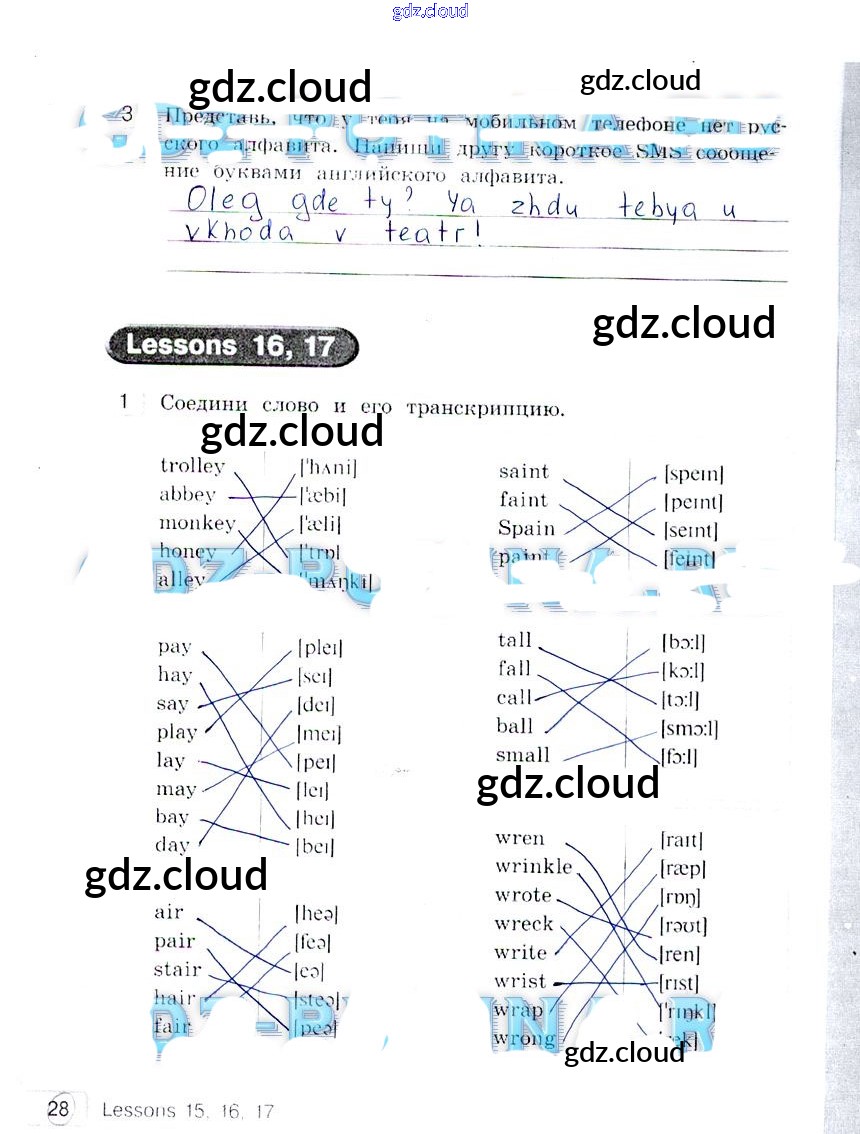 gdz.cloud
gdz.cloud
gdz.cloud
3 Представь, что у тебя на мобильном телефоне нет рус-
ского алфавита. Напиши другу короткое SMS сообще-
ние буквами английского алфавита.
Oleg gde ty? Ya zhdu tebya u
vkhoda v teatr!
gdz.cloud
Lessons 16, 17
1 Соедини слово и его транскрипцию.
gdz.cloud
trolley [ˈhʌni]
abbey [ˈæbi]
monkey [ˈæli]
honey
alley [ˈmʌŋki]
saint [speɪn]
faint [peɪnt]
Spain [seɪnt]
paint [feɪnt]
pay [pleɪ]
hay [seɪ]
say [deɪ]
play [meɪ]
lay [peɪ]
may [leɪ]
bay [heɪ]
day [beɪ]
tall [bɔ:l]
fall [kɔ:l]
call [tɔ:l]
ball [smɔ:l]
small [fɔ:l]
gdz.cloud
gdz.cloud
air [heə]
pair [feə]
stair [eə]
hair [steə]
fair [peə]
wren [raɪt]
wrinkle [ræp]
wrote [rɒŋ]
wreck [rəʊt]
write [ren]
wrist [rɪst]
wrap [ˈrɪŋkl]
wrong
gdz.cloud
28 Lessons 15, 16, 17